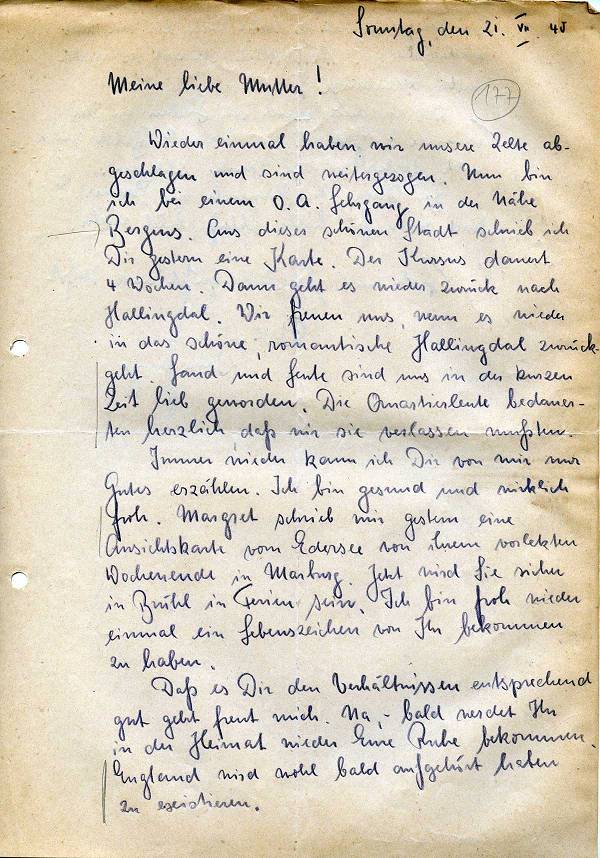 Sonntag, den 21. VII. 40
Meine liebe Mutter!
177
Wieder einmal haben wir unsere Zelte ab-
geschlagen und sind weitergezogen. Nun bin
ich bei einem O.A. Lehrgang in der Nähe
Bergens. Aus dieser schönen Stadt schrieb ich
Dir gestern eine Karte. Der Kursus dauert
4 Wochen. Dann geht es wieder zurück nach
Hallingdal. Wir freuen uns, wenn es wieder
in das schöne, romantische Hallingdal zurück-
geht. Land und Leute sind uns in der kurzen
Zeit lieb geworden. Die Quartiersleute bedauer-
ten herzlich, daß wir sie verlassen mußten.
Immer wieder kann ich Dir von mir nur
Gutes erzählen. Ich bin gesund und wirklich
froh. Margret schrieb mir gestern eine
Ansichtskarte vom Edersee von ihrem vorletzten
Wochenende in Marburg. Jetzt wird Sie sicher
in Brühl in Ferien sein. Ich bin froh wieder
einmal ein Lebenszeichen von Ihr bekommen
zu haben.
Daß es Dir den Verhältnissen entsprechend
gut geht freut mich. Na, - bald werdet Ihr
in der Heimat wieder Eure Ruhe bekommen.
England wird wohl bald aufgehört haben
zu existieren.